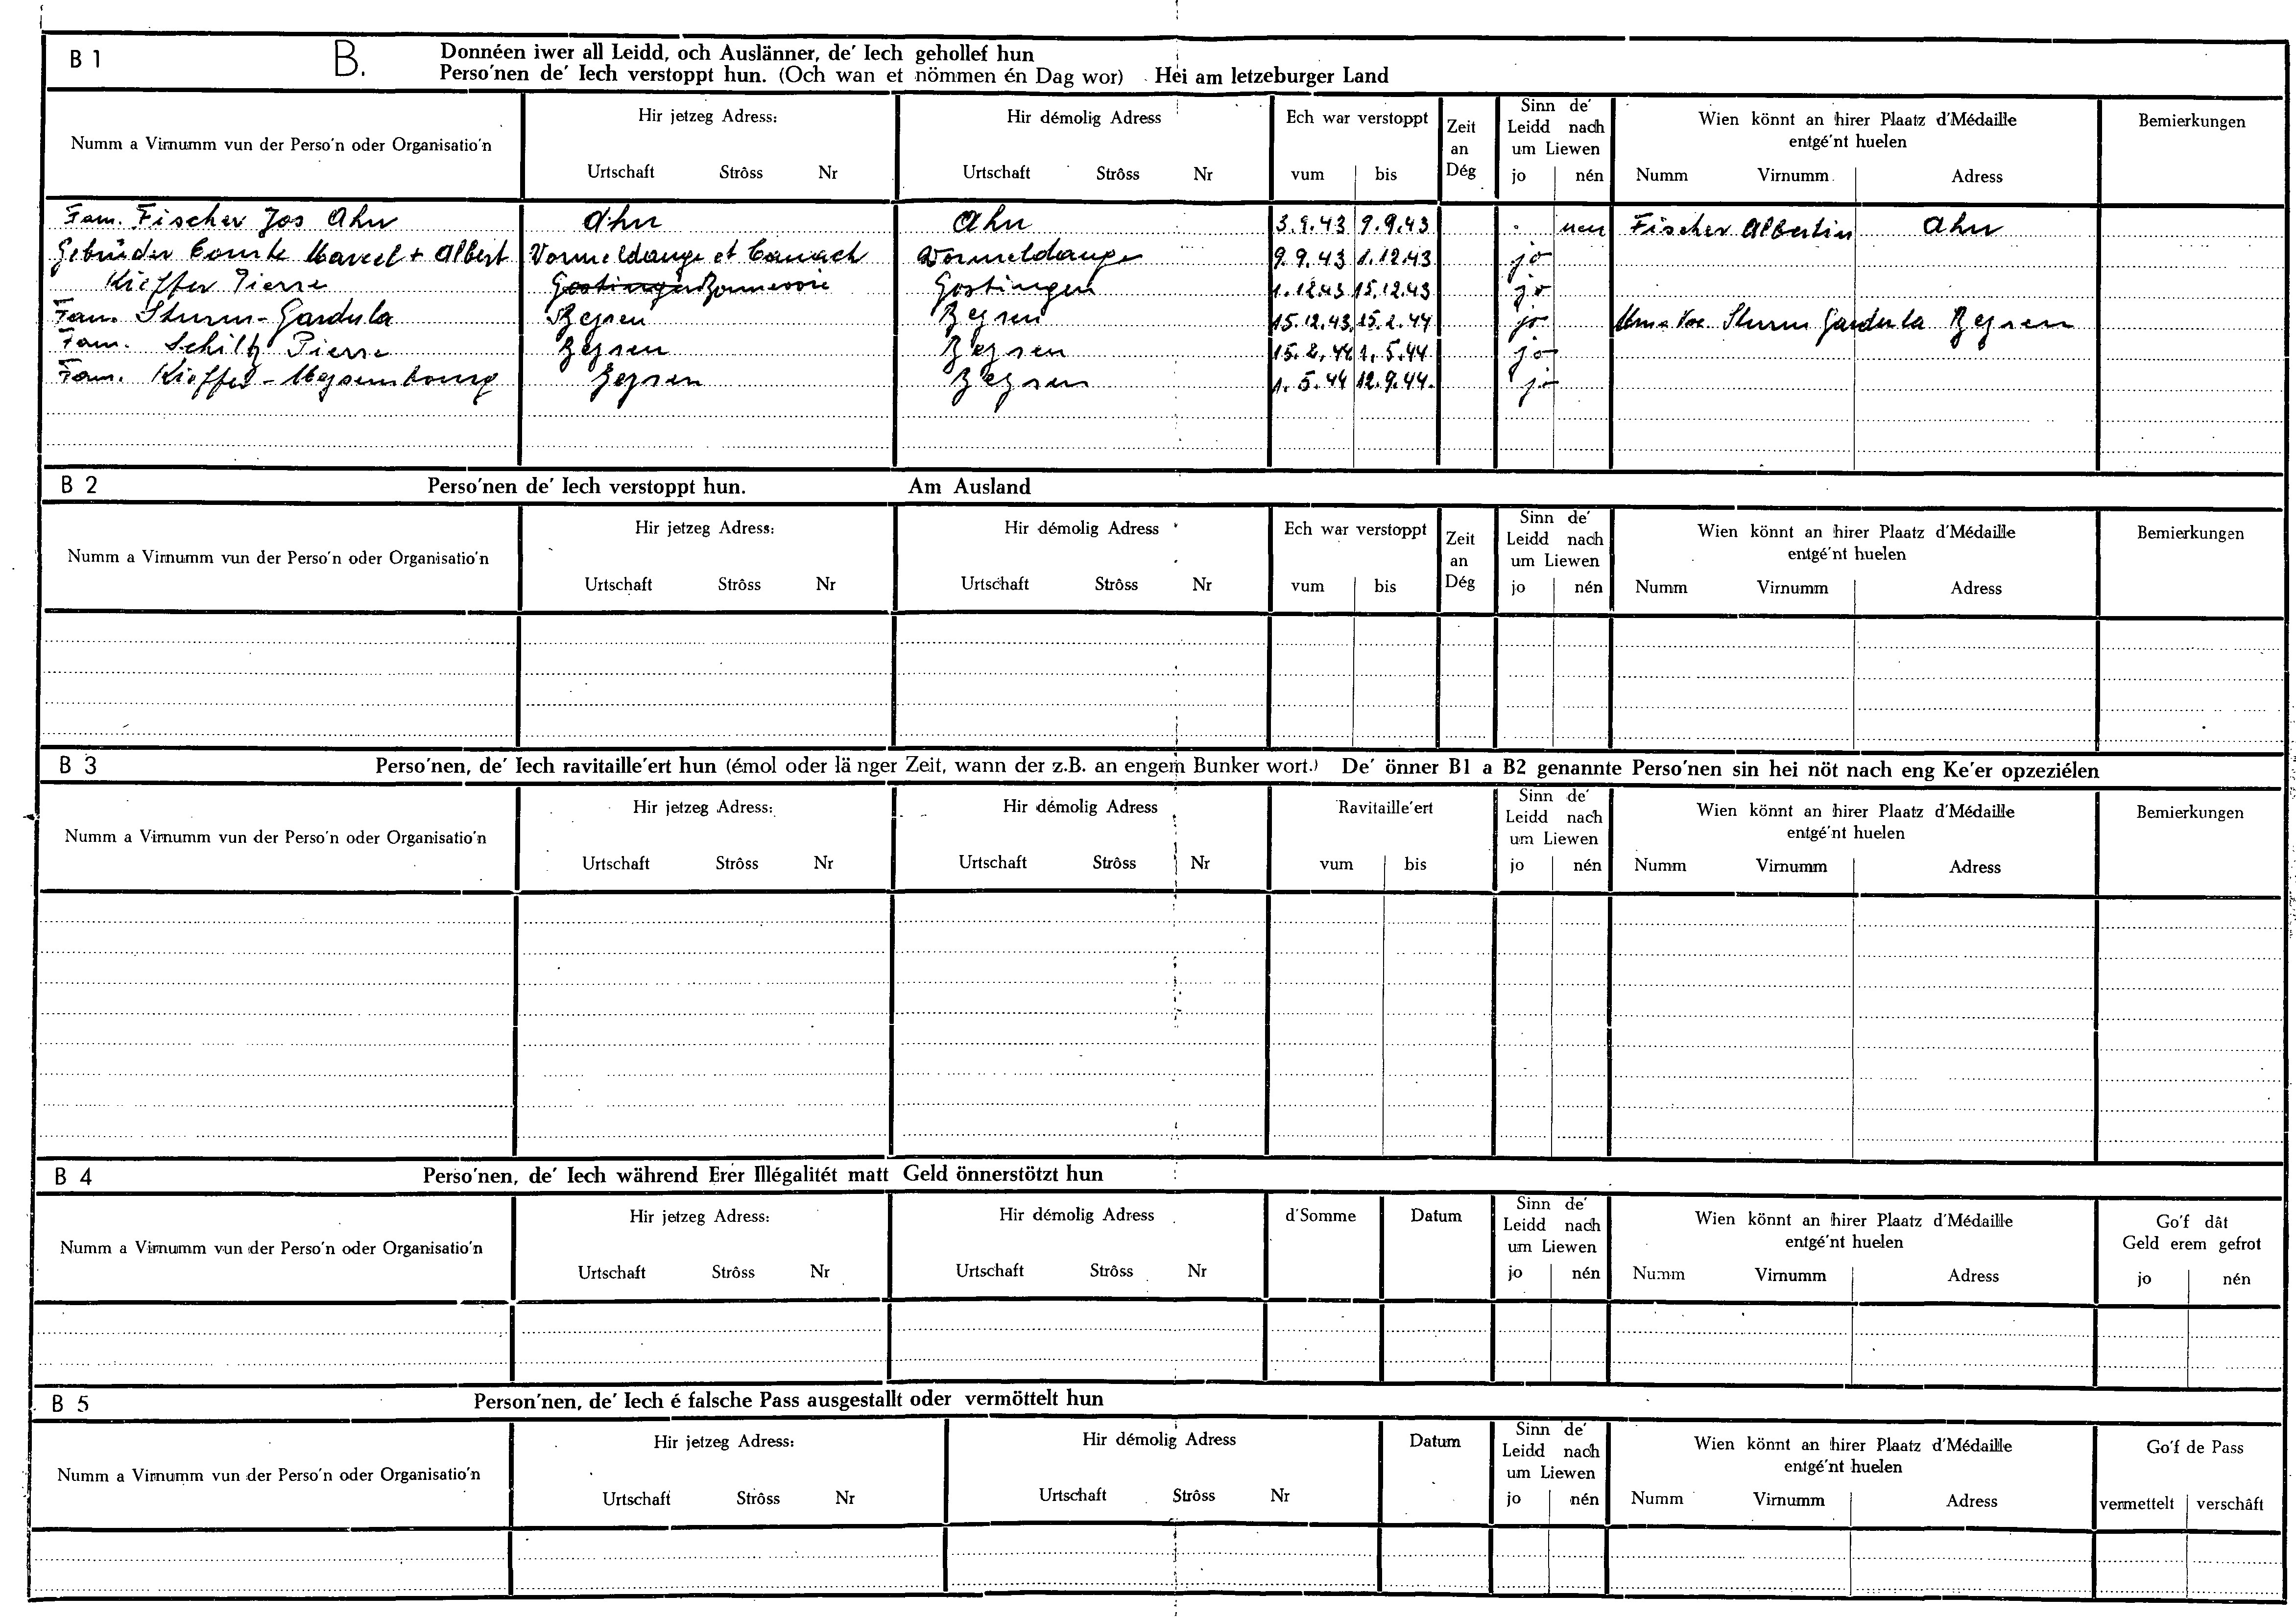 B 1 B. Donnéen iwer all Leidd, och Auslänner, de' Iech gehollef hun
Perso'nen de' Iech verstoppt hun. (Och wan et nömmen én Dag wor) Hei am letzeburger Land
Numm a Virnumm vun der Perso'n oder Organisatio'n Hir jetzeg Adress: Hir démolig Adress Ech war verstoppt Zeit an Dég Sinn de' Leidd nach um Liewen Wien könnt an hirer Plaatz d'Médaille entgé'nt huelen Bemierkungen
Urtschaft Strôss Nr Urtschaft Strôss Nr vum bis jo nén Numm Virnumm Adress
Fam. Fischer Jos Ahn Ahn Ahn 3.9.43 9.9.43 nen Fischer Albertin Ahn
Gebrüder Comte Marcel + Albert Wormeldange et Canach Wormeldange 9.9.43 1.12.43 jo
Kieffer Pierre Gostingen Bonnevoie Gostingen 1.12.43 15.12.43 jo
Fam. Sturm-Gardula Beyren Beyren 15.12.43 15.2.44 jo Sturm Gardula Beyren
Fam. Schiltz Pierre Beyren Beyren 15.2.44 1.5.44 jo
Fam. Kieffer-Meysembourg Beyren Beyren 1.5.44 12.9.44. jo
B 2 Perso'nen de' Iech verstoppt hun. Am Ausland
Numm a Virnumm vun der Perso'n oder Organisatio'n Hir jetzeg Adress: Hir démolig Adress Ech war verstoppt Zeit an Dég Sinn de' Leidd nach um Liewen Wien könnt an hirer Plaatz d'Médaille entgé'nt huelen Bemierkungen
Urtschaft Strôss Nr Urtschaft Strôss Nr vum bis jo nén Numm Virnumm Adress
B 3 Perso'nen, de' Iech ravitaille'ert hun (émol oder länger Zeit, wann der z.B. an engem Bunker wort.) De' önner B1 a B2 genannte Perso'nen sin hei nöt nach eng Ke'er opzeziélen
Numm a Virnumm vun der Perso'n oder Organisatio'n Hir jetzeg Adress: Hir démolig Adress Ravitaille'ert Sinn de' Leidd nach um Liewen Wien könnt an hirer Plaatz d'Médaille entgé'nt huelen Bemierkungen
Urtschaft Strôss Nr Urtschaft Strôss Nr vum bis jo nén Numm Virnumm Adress
B 4 Perso'nen, de' Iech während Erer Illégalitét matt Geld önnerstötzt hun
Numm a Virnumm vun der Perso'n oder Organisatio'n Hir jetzeg Adress: Hir démolig Adress d'Somme Datum Sinn de' Leidd nach um Liewen Wien könnt an hirer Plaatz d'Médaille entgé'nt huelen Go'f dât Geld erem gefrot
Urtschaft Strôss Nr Urtschaft Strôss Nr jo nén Numm Virnumm Adress jo nén
B 5 Person'nen, de' Iech é falsche Pass ausgestallt oder vermöttelt hun
Numm a Virnumm vun der Perso'n oder Organisatio'n Hir jetzeg Adress: Hir démolig Adress Datum Sinn de' Leidd nach um Liewen Wien könnt an hirer Plaatz d'Médaille entgé'nt huelen Go'f de Pass
Urtschaft Strôss Nr Urtschaft Strôss Nr jo nén Numm Virnumm Adress vermettelt verschâft